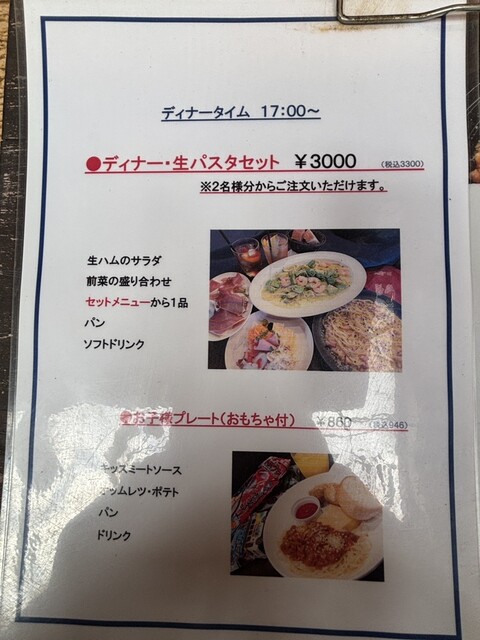 ディナータイム 17:00～
●ディナー・生パスタセット ￥3000 (税込3300)
※2名様分からご注文いただけます。
生ハムのサラダ
前菜の盛り合わせ
セットメニューから1品
パン
ソフトドリンク
●お子様プレート(おもちゃ付) ￥860 (税込946)
キッズミートソース
オムレツ・ポテト
パン
ドリンク